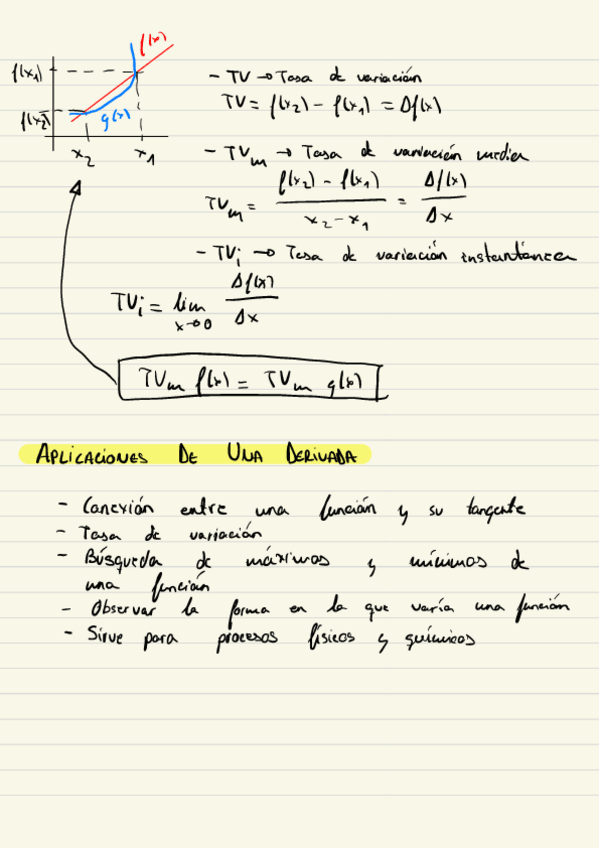 f(x)
f(x1)
f(x2)
g(x)
x2 x1
- TV → Tasa de variación
TV = f(x2) - f(x1) = Δf(x)
- TVm → Tasa de variación media
TVm = f(x2) - f(x1) / x2 - x1 = Δf(x) / Δx
- TVi → Tasa de variación instantánea
TVi = lim x→0 Δf(x) / Δx
TVm f(x) = TVm g(x)
APLICACIONES DE UNA DERIVADA
- Conexión entre una función y su tangente
- Tasa de variación
- Búsqueda de máximos y mínimos de
una función
- Observar la forma en la que varía una función
- Sirve para procesos físicos y químicos